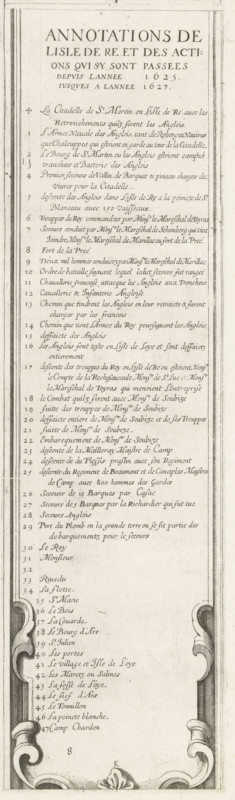 ANNOTATIONS DE
LISLE DE RE. ET DES ACTI=
ONS QVI SY SONT PASSEES
DEPVIS LANNEE 1625.
IVSQVES A LANNEE 1627.
+ La Citadelle de St Martin en Lisle de Re. avec les
Retrenchements quilz firent les Anglois.
1 L'Armee Navale des Anglois, tant de
que Challouppes qui estoient en garde au tour de la Citadelle.
2 Le Bourg de St Martin, ou les Anglois estoient campés
3 tranchée et Batterie des Anglois
4 Premier secours de Vallin, de Barques et pinaces chargées de
Vivres pour la Citadelle.
5 desfente des Anglois dans Lisle de Re a la poincte de St
Blanceau avec 120 Vaisseaux.
6 Trouppes du Roy commandees par Monsr le Mareschal de Toyras
7 Secours conduit par Monsr le Mareschal de Schomberg qui vient
Joindre Monsr le Mareschal de Marillac au fort de la Pree
8 Fort de la Pree
9 Deux mil hommes conduicts par Monsr le Mareschal de Marillac
10 Ordre de bataille suyvant lequel ledict secours fut rangé
11 Chavallerie françoise attacque les Anglois aux Trenchees
12 Cavallerie & Infanterie Angloise
13 Chemin que tindrent les Anglois en leur retraicte et furent
chargez par les francois
14 Chemin que tient l'Armee du Roy poursuyvant les Anglois
15 deffaicte des Anglois
16 les Anglois font teste en Lisle de Loye et sont deffaicts
entierement
17 descente des trouppes du Roy en Lisle de Re ou estoient Monsr
le Compte de la Rochefoucault Monsr de St Luc et Monsr
le Mareschal de Toyras qui menoient L'entreprise
18 le Combat quilz firent avec Monsr de Soubize
19 fuitte des trouppes de Monsr de Soubize
20 deffaicte entiere de Monsr de Soubize et de ses Trouppes
21 fuitte de Monsr de Soubize
22 Embarquement de Monsr de Soubize
23 descente de la Milleray Maistre de Camp
24 descente de du Plessis praslin avec son Regiment
25 descente du Regiment de Beaumont et de Canaples Maistre
de Camp avec 800 hommes des Gardes
26 Secours de 19 Barques par
27 Secours de 5 Barques par la Richardier qui fut tue
28 Secours Anglois
29 Port du Plomb en la grande terre ou se fit partie des
debarquements pour le secours
30 Le Roy
31 Monsieur
32
33 Rivedes
34 La flotte
35 St Marie
36 Le Bois
37 La Couarde
38 Le Bourg d'Are
39 St Iulien
40 Les portes
41 Le village et Isle de Loye
42 Les Maretz ou Salines
43 La fosse de Loye
44 Le fief d'Are
45 Le Tonnillon
46 La poincte blanche
47 Camp Chardon
8